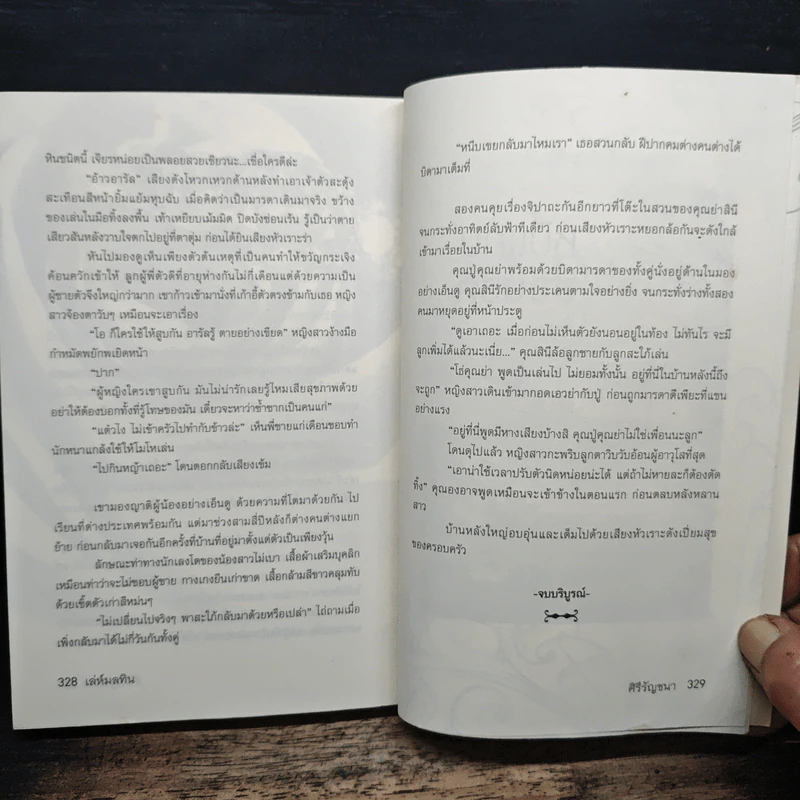 หินชนิดนี้ เจียรหน่อยเป็นพลอยสวยเชียวนะ...เชื่อใครดีล่ะ
"อ้าวอารัล" เสียงดังโหวกเหวกด้านหลังทำเอาเจ้าตัวสะดุ้ง
สะเทือนสีหน้ายิ้มแย้มหุบฉับ เมื่อคิดว่าเป็นมารดาเดินมาจริง ขว้าง
ของเล่นในมือทิ้งลงพื้น เท้าเหยียบเม้มมิด ปิดบังซ่อนเร้น รู้เป็นว่าตาย
เสียวสันหลังวาบใจตกไปอยู่ที่ตาตุ่ม ก่อนได้ยินเสียงหัวเราะร่า
หันไปมองดูเห็นเพียงตัวต้นเหตุที่เป็นคนทำให้ขวัญกระเจิง
ค้อนควักเข้าให้ ลูกผู้พี่ตัวดีที่อายุห่างกันไม่กี่เดือนแต่ด้วยความเป็น
ผู้ชายตัวจึงใหญ่กว่ามาก เขาก้าวเข้ามานั่งที่เก้าอี้ตัวตรงข้ามกับเธอ หญิง
สาวจ้องตาวับๆ เหมือนจะเอาเรื่อง
"โอ ก็ใครใช้ให้สูบกัน อารัลรู้ ตายอย่างเขียด" หญิงสาวง้างมือ
กำหมัดพยักพเยิดหน้า
"ปาก"
"ผู้หญิงใครเขาสูบกัน มันไม่น่ารักเลยรู้ไหมเสียสุขภาพด้วย
อย่าให้ต้องบอกทั้งที่รู้โทษของมัน เดี๋ยวจะหาว่าซ้ำซากเป็นคนแก่"
"แต้วไง ไม่เข้าครัวไปทำกับข้าวล่ะ" เห็นพี่ชายแก่เดือนชอบทำ
นักหนาแกล้งใช้ให้โมโหเล่น
"ไปกินหญ้าเถอะ" โดนตอกกลับเสียงเข้ม
เขามองญาติผู้น้องอย่างเอ็นดู ด้วยความที่โตมาด้วยกัน ไป
เรียนที่ต่างประเทศพร้อมกัน แต่มาช่วงสามสี่ปีหลังก็ต่างคนต่างแยก
ย้าย ก่อนกลับมาเจอกันอีกครั้งที่บ้านที่อยู่มาตั้งแต่ตัวเป็นเพียงวุ้น
ลักษณะท่าทางนักเลงโตของน้องสาวไม่เบา เสื้อผ้าเสริมบุคลิก
เหมือนท่าว่าจะไม่ชอบผู้ชาย กางเกงยีนเก่าขาด เสื้อกล้ามสีขาวคลุมทับ
ด้วยเชิ้ตตัวเก่าสีหม่นๆ
"ไม่เปลี่ยนไปจริงๆ พาสะใภ้กลับมาด้วยหรือเปล่า" ไถ่ถามเมื่อ
เพิ่งกลับมาได้ไม่กี่วันกันทั้งคู่
328 เล่ห์มลทิน
"หนีบเขยกลับมาไหมเรา" เธอสวนกลับ ฝีปากคมต่างคนต่างได้
บิดามาเต็มที่
สองคนคุยเรื่องจิปาถะกันอีกยาวที่โต๊ะในสวนของคุณย่าสินี
จนกระทั่งอาทิตย์ลับฟ้าทีเดียว ก่อนเสียงหัวเราะหยอกล้อกันจะดังใกล้
เข้ามาเรื่อยในบ้าน
คุณปู่คุณย่าพร้อมด้วยบิดามารดาของทั้งคู่นั่งอยู่ด้านในมอง
อย่างเอ็นดู คุณสินีรักอย่างประเคนตามใจอย่างยิ่ง จนกระทั่งร่างทั้งสอง
คนมาหยุดอยู่ที่หน้าประตู
"ดูเอาเถอะ เมื่อก่อนไม่เห็นตัวยังนอนอยู่ในท้อง ไม่ทันไร จะมี
ลูกเพิ่มได้แล้วนะเนี่ย..." คุณสินีล้อลูกชายกับลูกสะใภ้เล่น
"โธ่คุณย่า พูดเป็นเล่นไป ไม่ยอมทั้งนั้น อยู่ที่นี่ในบ้านหลังนี้ถึง
จะถูก" หญิงสาวเดินเข้ามากอดเอวย่ากับปู่ ก่อนถูกมารดาตีเพียะที่แขน
อย่างแรง
"อยู่ที่นี่พูดมีหางเสียงบ้างสิ คุณปู่คุณย่าไม่ใช่เพื่อนนะลูก"
โดนดุไปแล้ว หญิงสาวกะพริบลูกตาวิบวับอ้อนผู้อาวุโสที่สุด
"เอาน่าใช้เวลาปรับตัวนิดหน่อยน่ะได้ แต่ถ้าไม่หายละก็ต้องตัด
ทิ้ง" คุณองอาจพูดเหมือนจะเข้าข้างในตอนแรก ก่อนตลบหลังหลาน
สาว
บ้านหลังใหญ่อบอุ่นและเต็มไปด้วยเสียงหัวเราะดังเปี่ยมสุข
ของครอบครัว
-จบบริบูรณ์-
ศิริรัญชนา 329